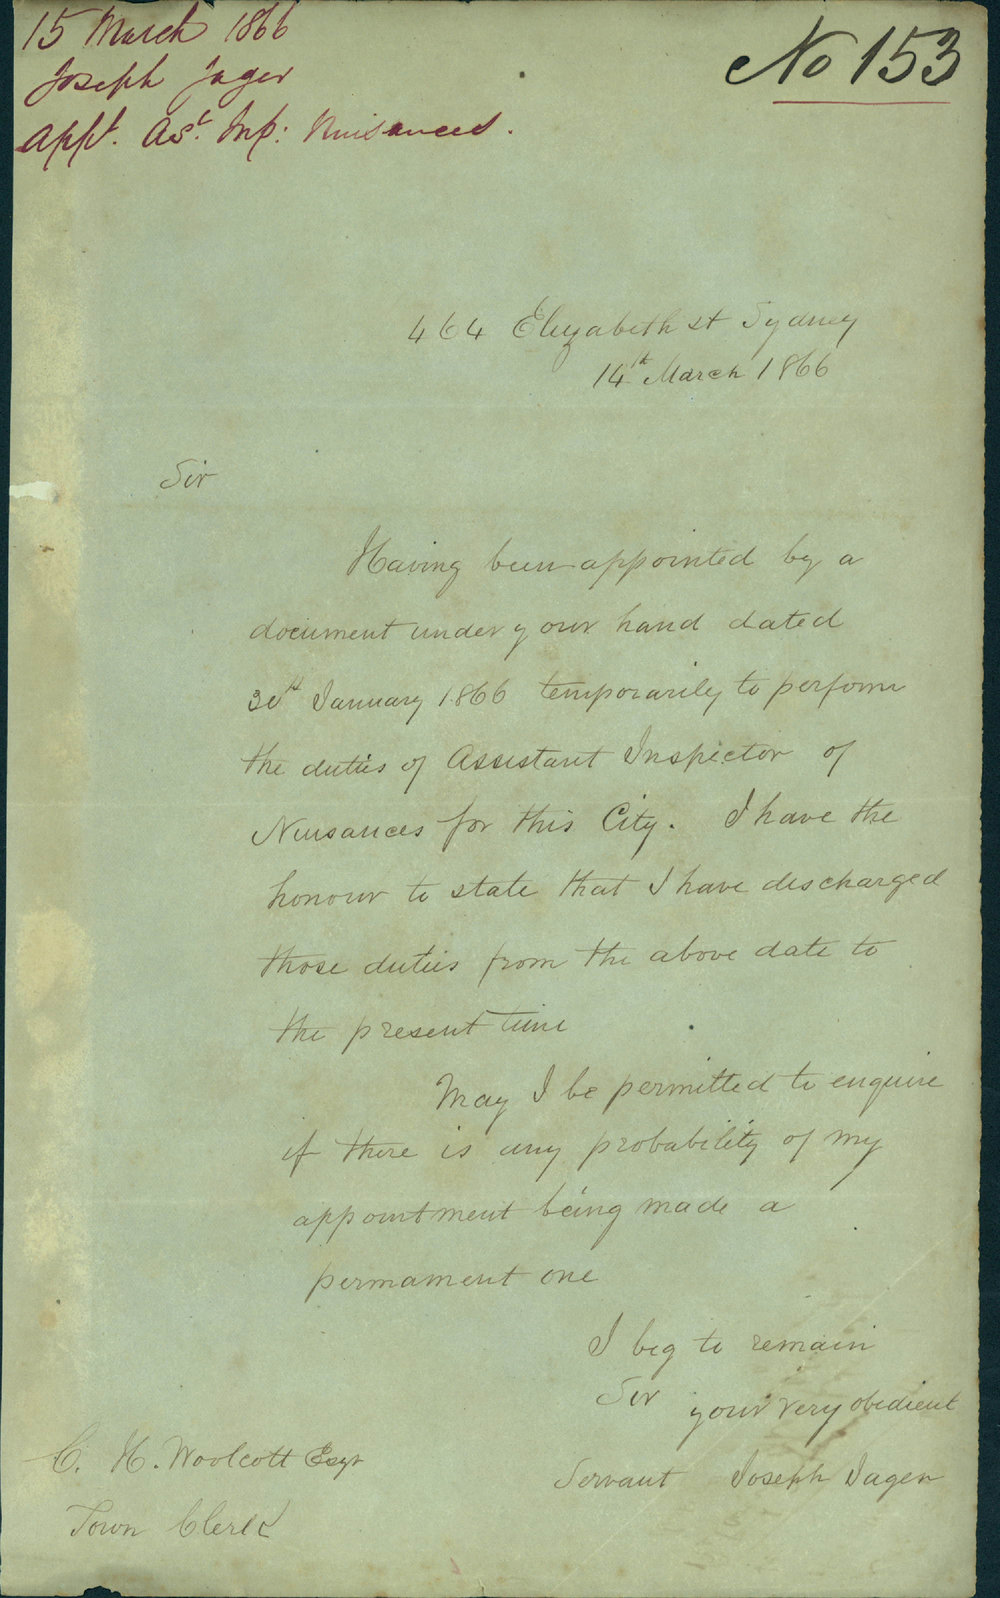 15 March 1866
Joseph Jager
Appt. Ast. Inp: Nuisances.
No 153
464 Elizabeth st Sydney
14th March 1866
Sir
Having been appointed by a
document under your hand dated
30th January 1866 temporarily to perform
the duties of Assistant Inspector of
Nuisances for this City. I have the
honour to state that I have discharged
those duties from the above date to
the present time
May I be permitted to enquire
if there is any probability of my
appointment being made a
permament one
I beg to remain
Sir your very obedient
Servant Joseph Jager
C. H. Woolcott Esqr
Town Clerk